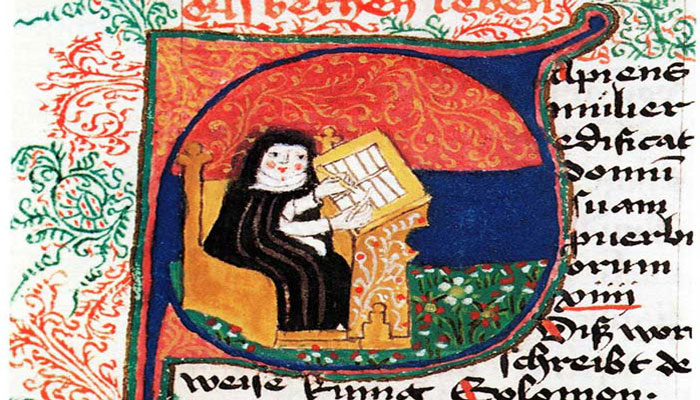 elsbethen leben
Sapiens
mulier
edificat
domū
suam
puerbi
orum
xiiii
Diß wor
schreibt de
weise kunig Solomon.